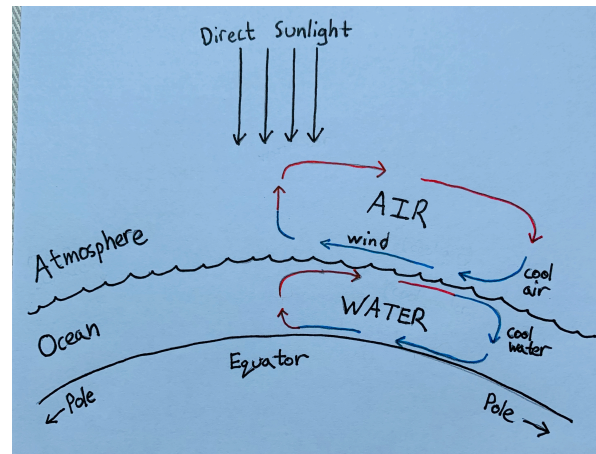 Direct Sunlight
AIR
wind
Atmosphere
cool
air
WATER
Ocean
cool
water
Equator
Pole
Pole